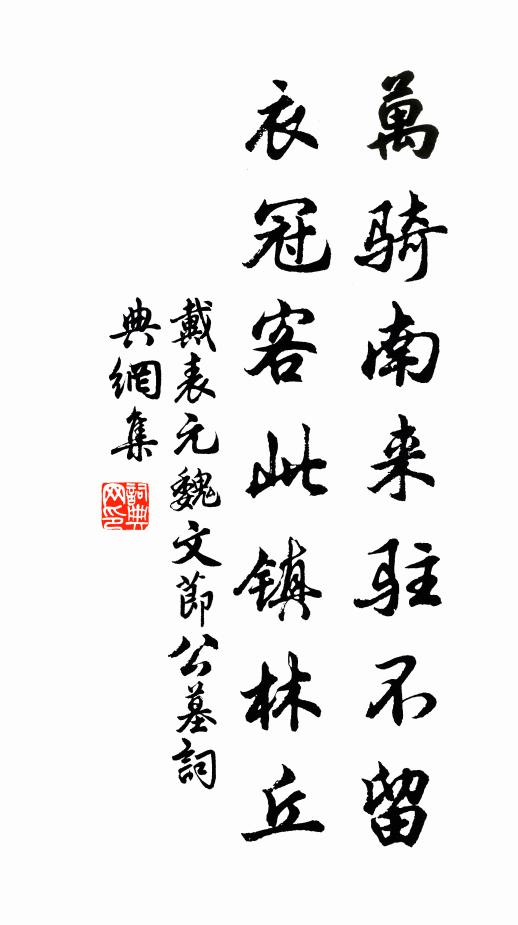 萬骑南来駐不留
衣冠客此镇林丘
戴表元魏文節公墓詞
典網集
詞典网印